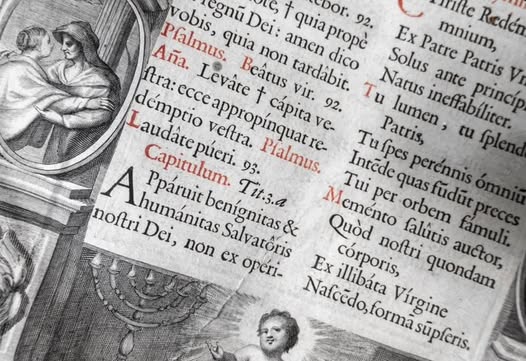 Rebor. 92.
note, † quia propè
Regnũ Dei: amen dico
vobis, quia non tardábit.
Psalmus. Beátus vir. 92.
Aña. Leváte † cápita ve-
stra: ecce appropínquat re-
démptio vestra. Psalmus.
Laudáte púeri. 93.
Capitulum. Tit. 3. a
Appáruit benígnitas &
humánitas Salvatóris
nostri Dei, non ex opéri-
Christe Redem
mnium,
Ex Patre Patris V
Solus ante princíp
Natus ineffabíliter.
Tu lumen, tu splend
Patris,
Tu spes perénnis ómniũ
Intẽde quas fũdũt preces
Tui per orbem fámuli.
Meménto salútis auctor,
Quòd nostri quondam
córporis,
Ex illibáta Vírgine
Nascẽdo, forma sũpseris.